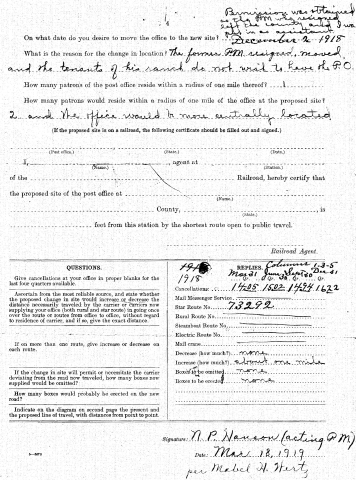 Permission was obtained
as the PM had resigned
left the country and I was
left in as assistant.
On what date do you desire to move the office to the new site? December 2 1918
What is the reason for the change in location? The former PM resigned, moved
and the tenants of his ranch do not wish to have the P.O.
How many patrons of the post office reside within a radius of one mile thereof? 1
How many patrons would reside within a radius of one mile of the office at the proposed site?
2 and the office would be more centrally located
(If the proposed site is on a railroad, the following certificate should be filled out and signed.)
(Post office.) (State.) (Date.)
I, , agent at
(Name.) (Station.)
of the Railroad, hereby certify that
the proposed site of the post office at
(Name.)
County, , is
(State.)
feet from this station by the shortest route open to public travel.
Railroad Agent.
QUESTIONS.
Give cancellations at your office in proper blanks for the
last four quarters available.
Ascertain from the most reliable source, and state whether
the proposed change in site would increase or decrease the
distance necessarily traveled by the carrier or carriers now
supplying your office (both rural and star route) in going once
over the route or routes from office to office, without regard
to residence of carrier, and if so, give the exact distance.
If on more than one route, give increase or decrease on
each route.
If the change in site will permit or necessitate the carrier
deviating from the road now traveled, how many boxes now
supplied would be omitted?
How many boxes would probably be erected on the new
road?
Indicate on the diagram on second page the present and
the proposed line of travel, with distances from point to point.
1918
REPLIES. Columns 1-3-5
1918 Mar 31 June 30 Sept 30 Dec 31
Cancellations: 1405 1502 1494 1622
Mail Messenger Service
Star Route No. 73292
Rural Route No.
Steamboat Route No.
Electric Route No.
Mail crane
Decrease (how much?) none
Increase (how much?) about one mile
Boxes to be omitted none
Boxes to be erected none
Signature: N. P. Hanson (acting PM)
Date: Mar 18, 1919
per Mabel H. Hertz